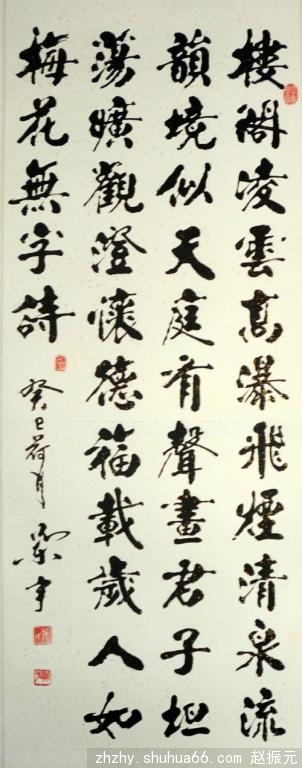 樓閣凌雲高瀑飛煙清泉流
韻境似天庭有聲畫君子坦
蕩曠觀澄懷德福載歲人如
梅花無字詩
癸巳荷月
zhzhy.shuhua66.com 赵振元